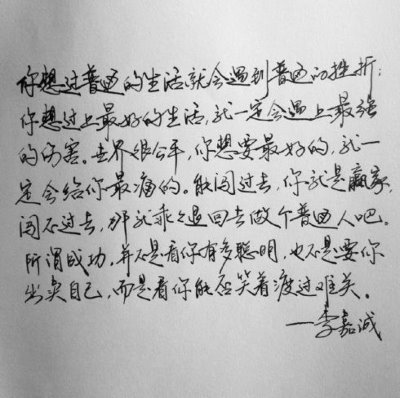 你想过普通的生活,就会遇到普通的挫折;
你想过上最好的生活,就一定会遇上最强
的伤害。世界很公平,你想要最好的,就一
定会给你最痛的。能闯过去,你就是赢家,
闯不过去,那就乖乖退回去做个普通人吧。
所谓成功,并不是看你有多聪明,也不是要你
出卖自己,而是看你能否笑着渡过难关。
—李嘉诚